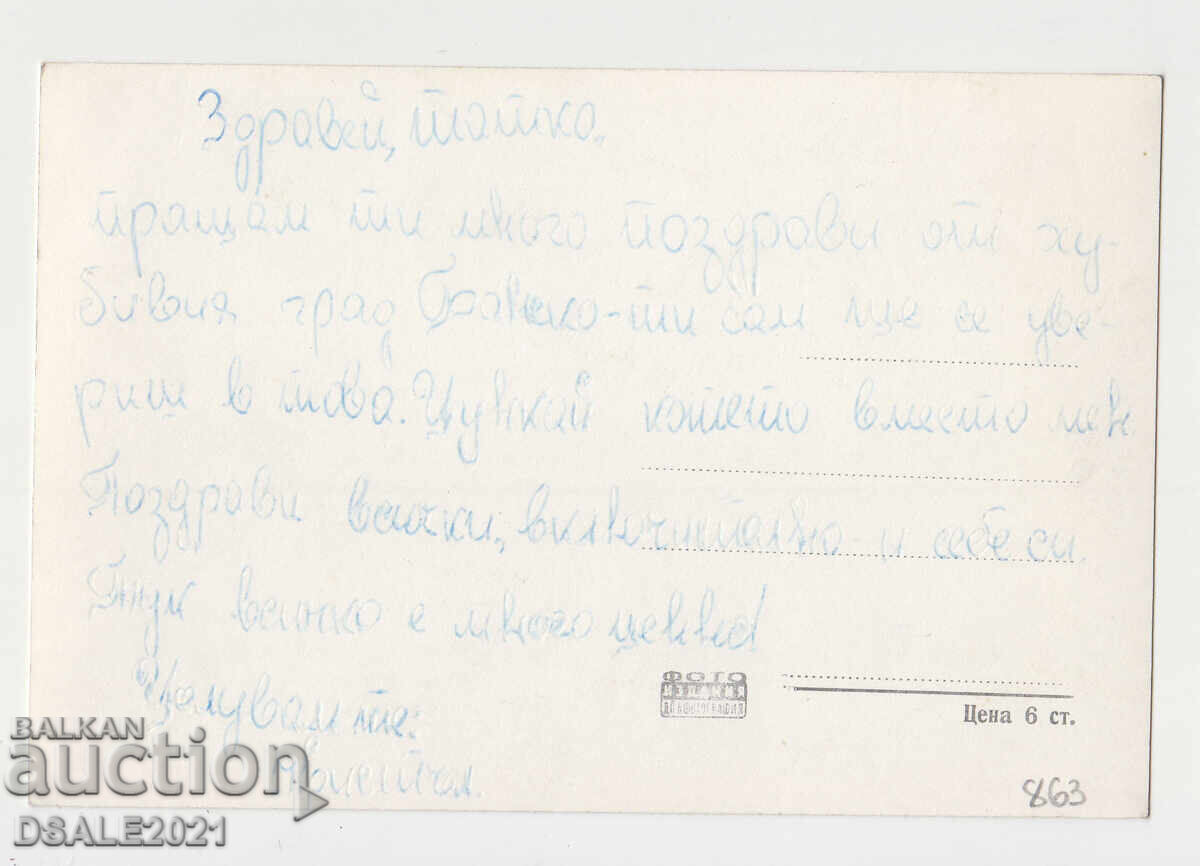 Здравей, татко,
пращам ти много поздрави от ху-
бивия град Банско-ти сам ще се уве-
риш в това. Цункай котето вместо мен.
Поздрави всички, включително и себе си.
Тук всичко е много ценно!
Целувам те:
ФОТО
ИЗДАНИЯ
ДПК ФОТОГРАФИЯ
Цена 6 ст.
863
BALKAN
auction
DSALE2021